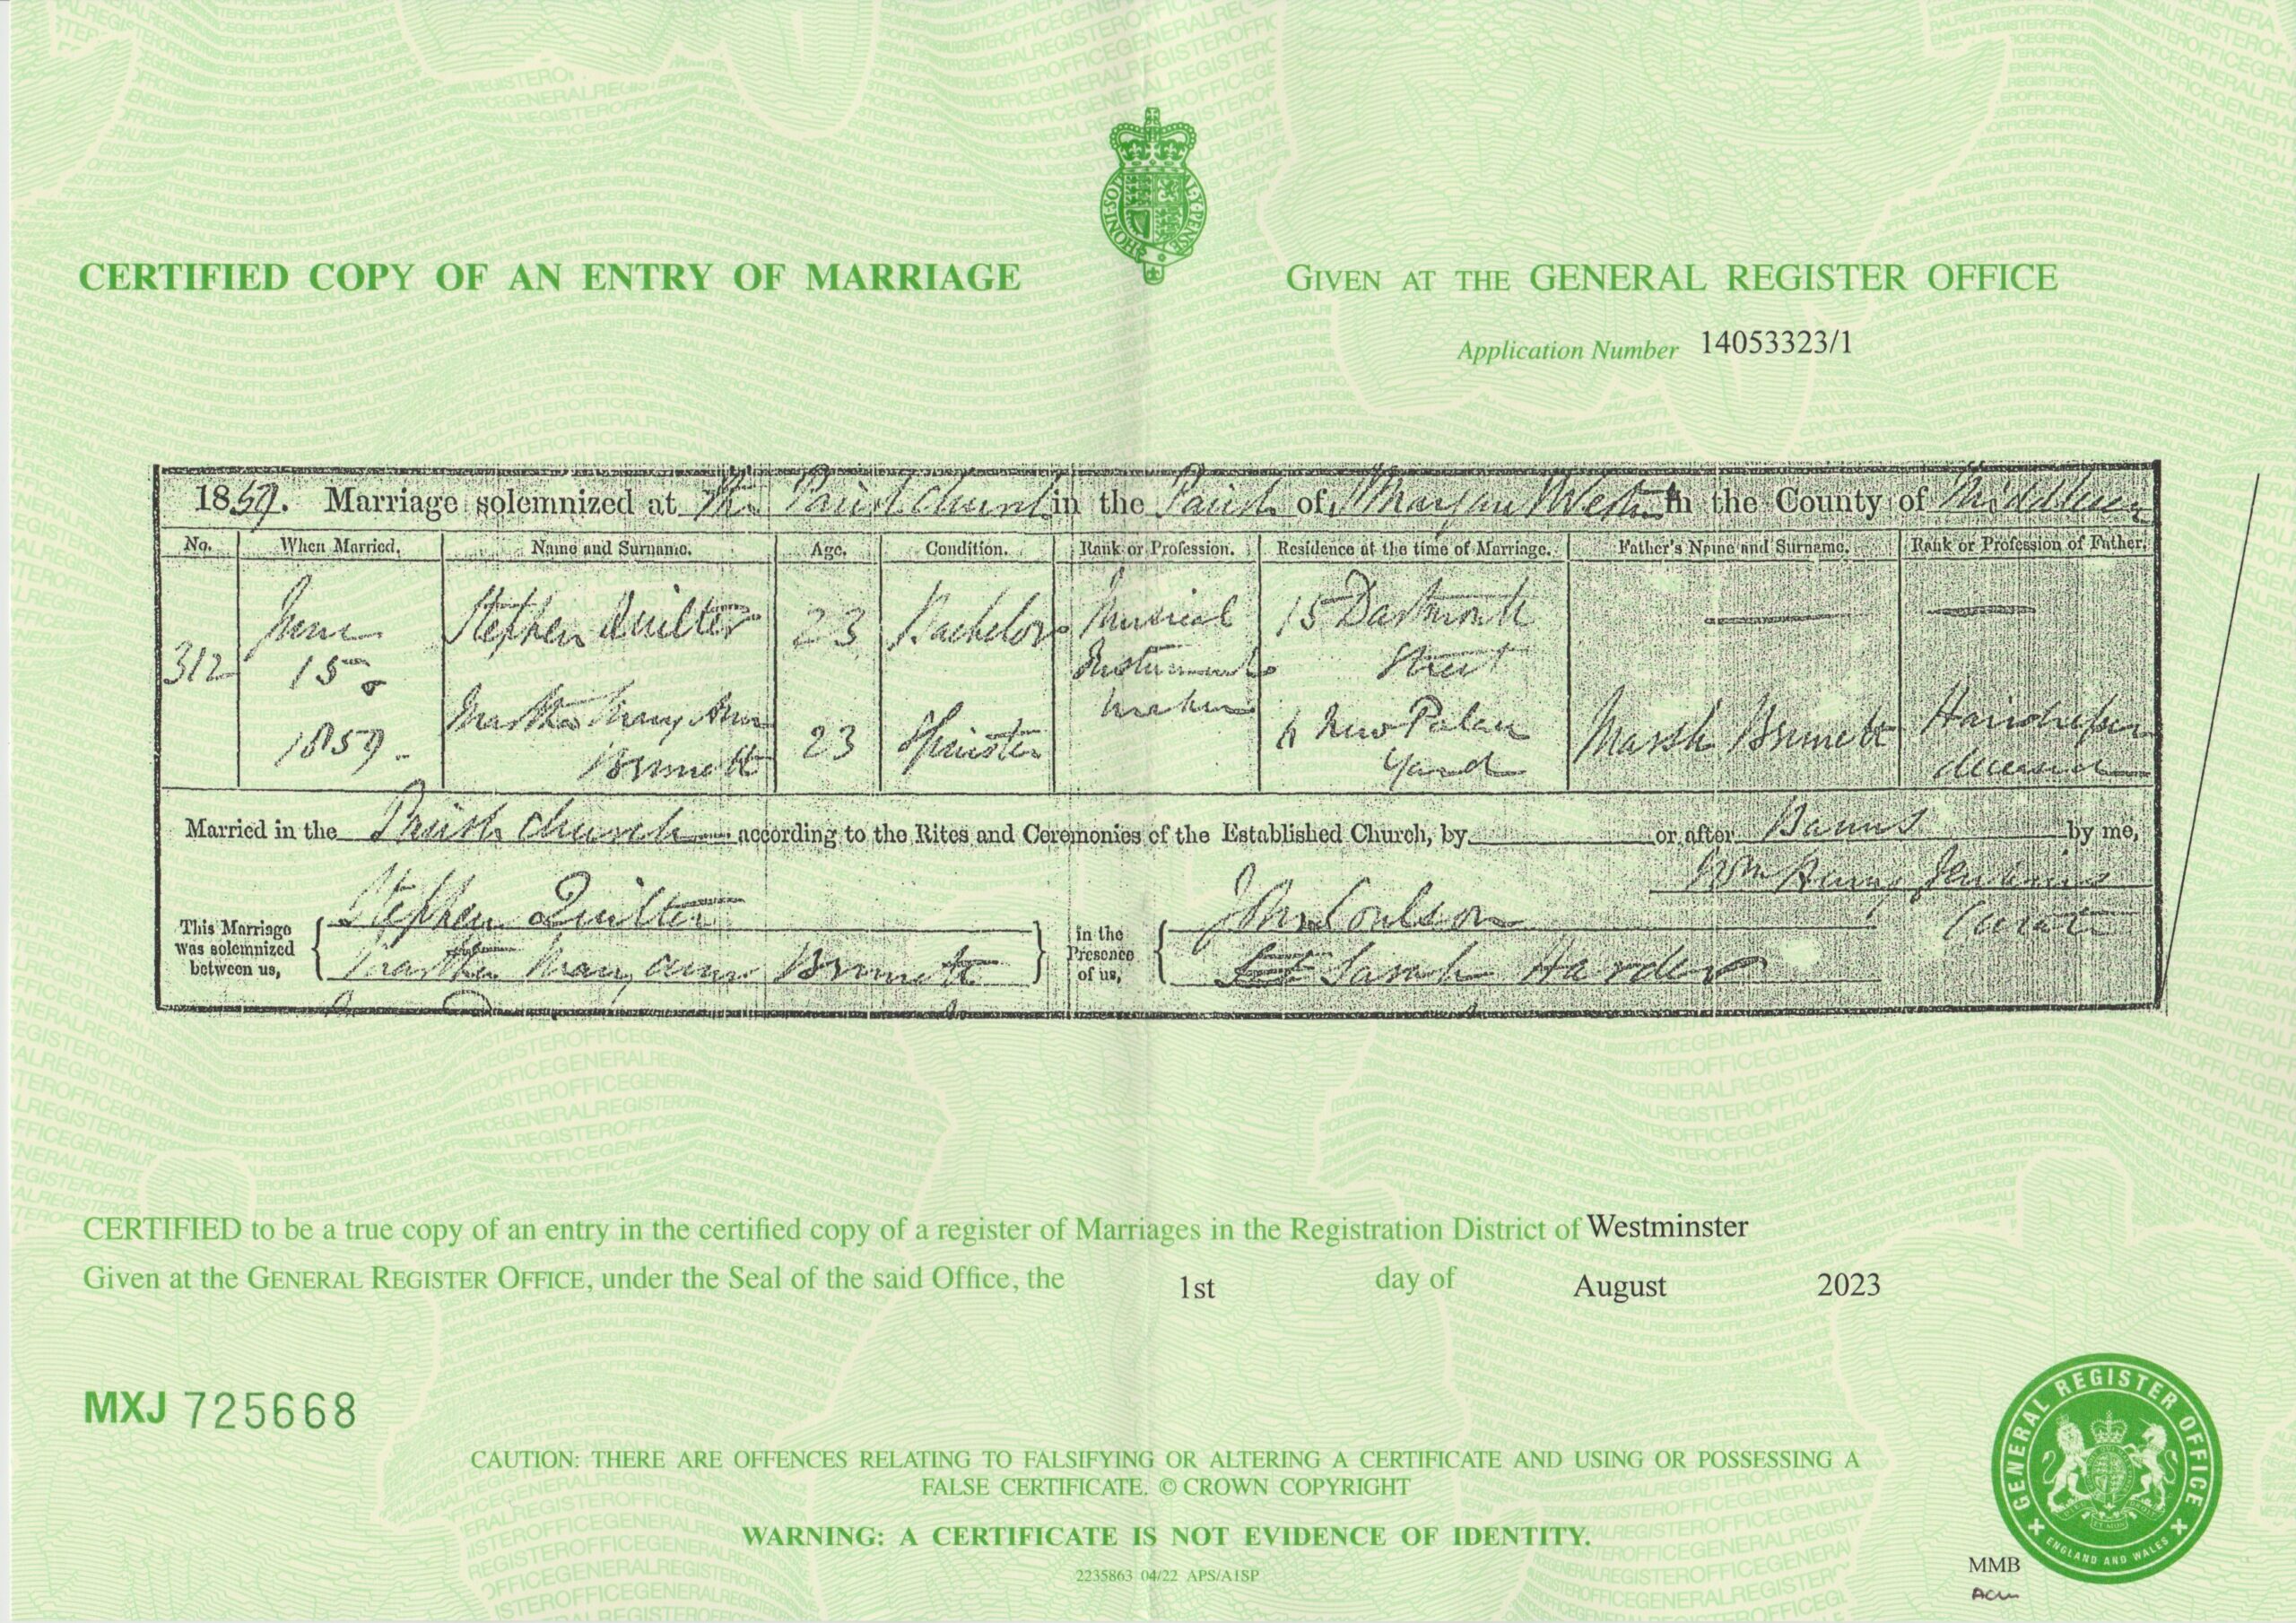 HONI·SOI AL·Y·PENSE
CERTIFIED COPY OF AN ENTRY OF MARRIAGE
GIVEN AT THE GENERAL REGISTER OFFICE
Application Number 14053323/1
1859. Marriage solemnized at The Parish Church in the Parish of St Margaret West in the County of Middlesex
No. When Married. Name and Surname. Age. Condition. Rank or Profession. Residence at the time of Marriage. Father's Name and Surname. Rank or Profession of Father.
312 June 15 1859. Stephen Quilter 23 Bachelor Musical Instrument maker 15 Dartmouth Street
Martha Mary Ann 23 Spinster 6 New Palace Yard Marsh deceased
Married in the Parish Church according to the Rites and Ceremonies of the Established Church, by or after Banns by me,
Wm Jenkins
Curate
This Marriage was solemnized between us, Stephen Quilter
Martha Mary ann
in the Presence of us, John Coulson
Sarah Harder
CERTIFIED to be a true copy of an entry in the certified copy of a register of Marriages in the Registration District of Westminster
Given at the GENERAL REGISTER OFFICE, under the Seal of the said Office, the 1st day of August 2023
MXJ 725668
CAUTION: THERE ARE OFFENCES RELATING TO FALSIFYING OR ALTERING A CERTIFICATE AND USING OR POSSESSING A
FALSE CERTIFICATE. © CROWN COPYRIGHT
WARNING: A CERTIFICATE IS NOT EVIDENCE OF IDENTITY.
2235863 04/22 APS/A1SP
GENERAL REGISTER OFFICE
ENGLAND AND WALES
MMB